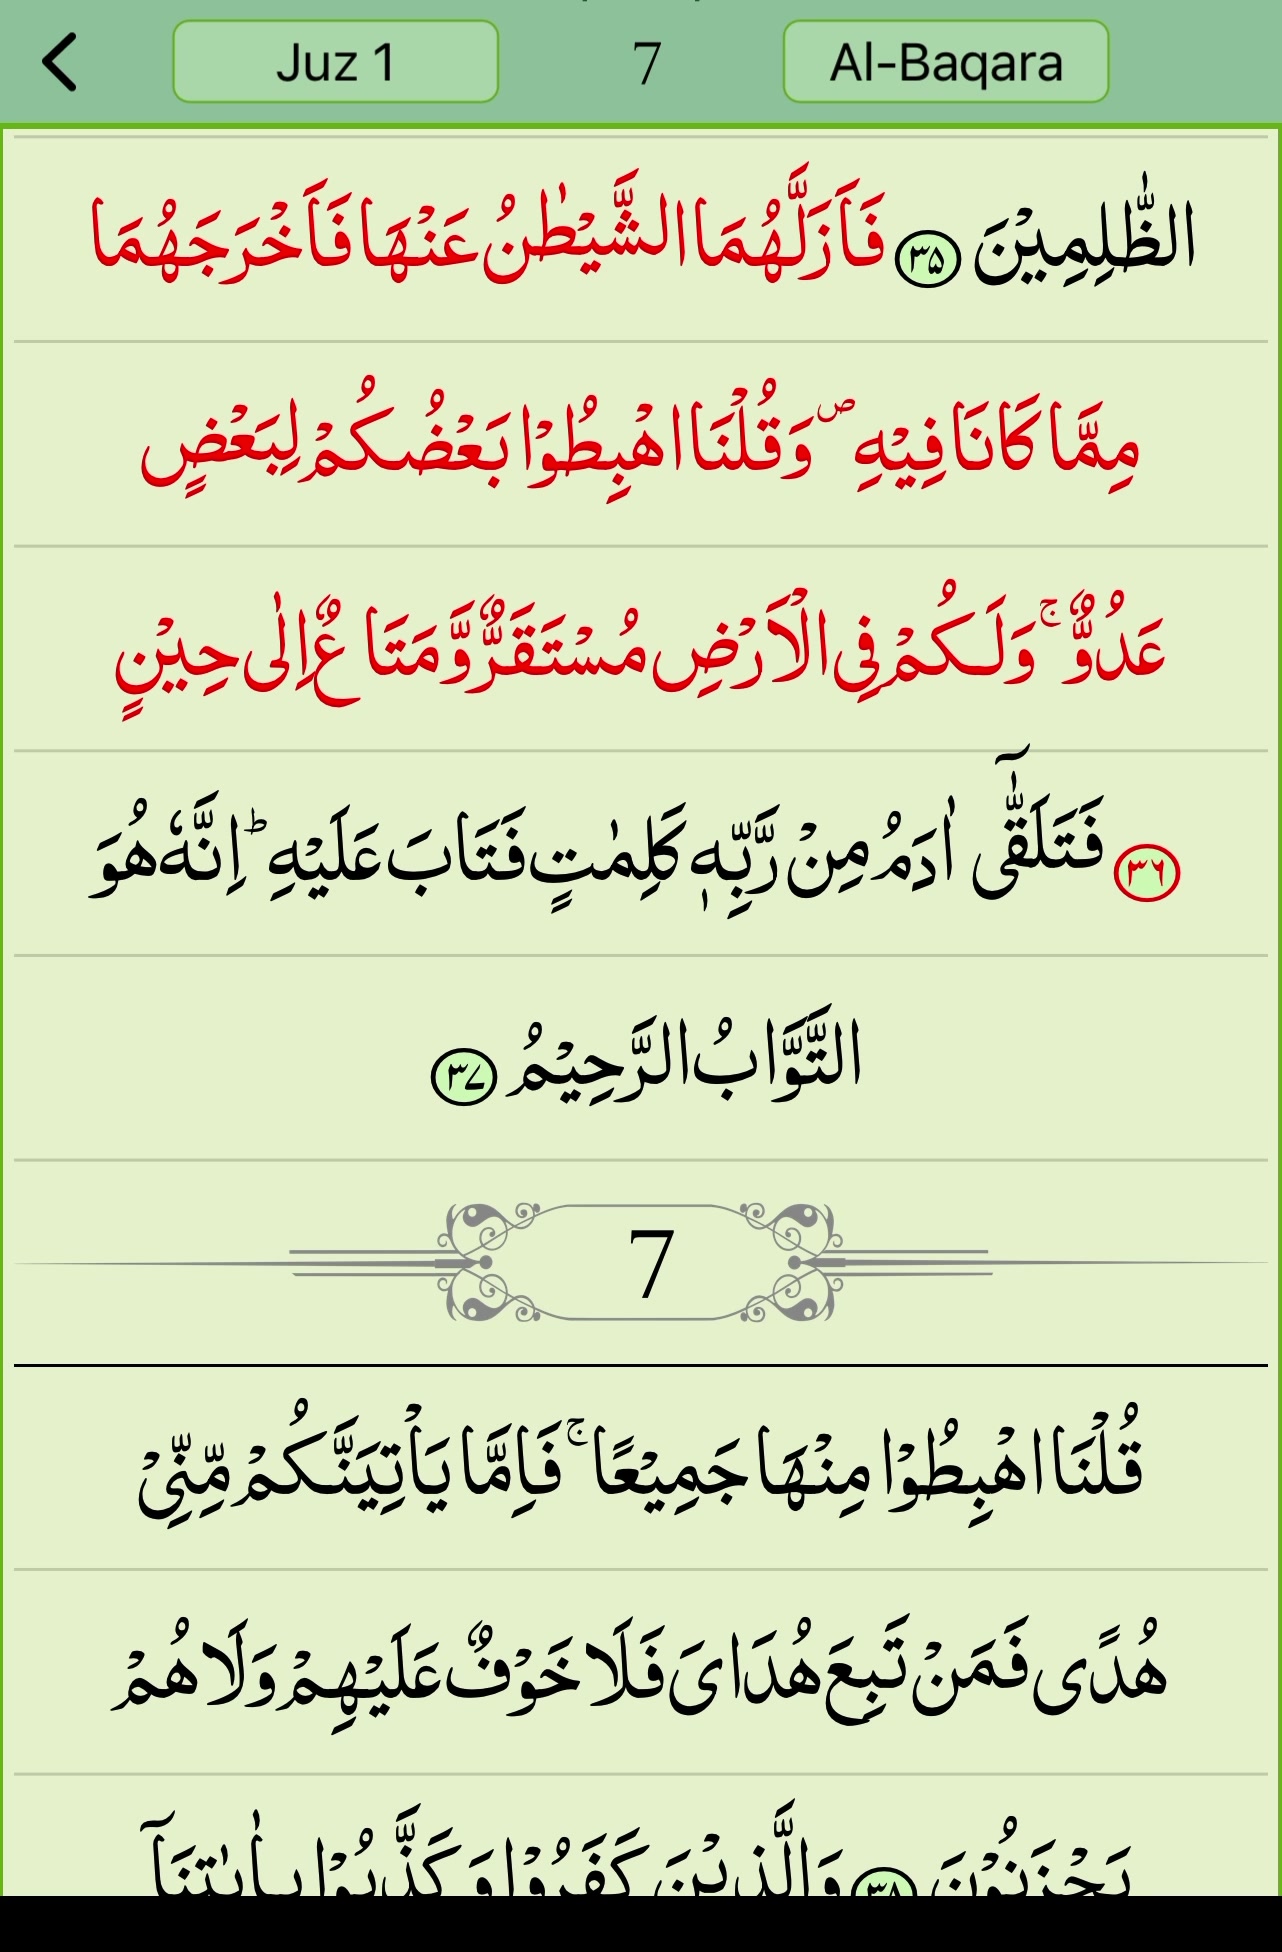 Juz 1 7 Al-Baqara
الظّٰلِمِيْنَ ۳۵ فَاَزَلَّهُمَا الشَّيْطٰنُ عَنْهَا فَاَخْرَجَهُمَا
مِمَّا كَانَا فِيْهِ ۖ وَقُلْنَا اهْبِطُوْا بَعْضُكُمْ لِبَعْضٍ
عَدُوٌّ ۚ وَلَـكُمْ فِى الْاَرْضِ مُسْتَقَرٌّ وَّمَتَاعٌ اِلٰى حِيْنٍ
۳۶ فَتَلَقّٰٓى اٰدَمُ مِنْ رَّبِّهٖ كَلِمٰتٍ فَتَابَ عَلَيْهِ ؕ اِنَّهٗ هُوَ
التَّوَّابُ الرَّحِيْمُ ۳۷
7
قُلْنَا اهْبِطُوْا مِنْهَا جَمِيْعًا ۚ فَاِمَّا يَاْتِيَنَّكُمْ مِّنِّىْ
هُدًى فَمَنْ تَبِعَ هُدَاىَ فَلَا خَوْفٌ عَلَيْهِمْ وَلَا هُمْ
يَحْزَنُوْنَ ۳۸ وَالَّذِيْنَ كَفَرُوْا وَكَذَّبُوْا بِاٰيٰتِنَآ